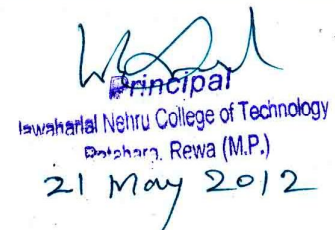 Principal
Jawaharlal Nehru College of Technology
Rewa (M.P.)
21 May 2012